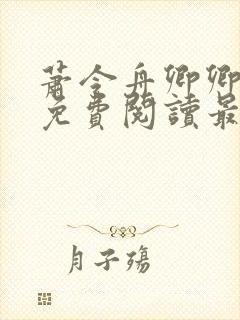 蕭令舟卿卿
免費閱讀最
月子殤